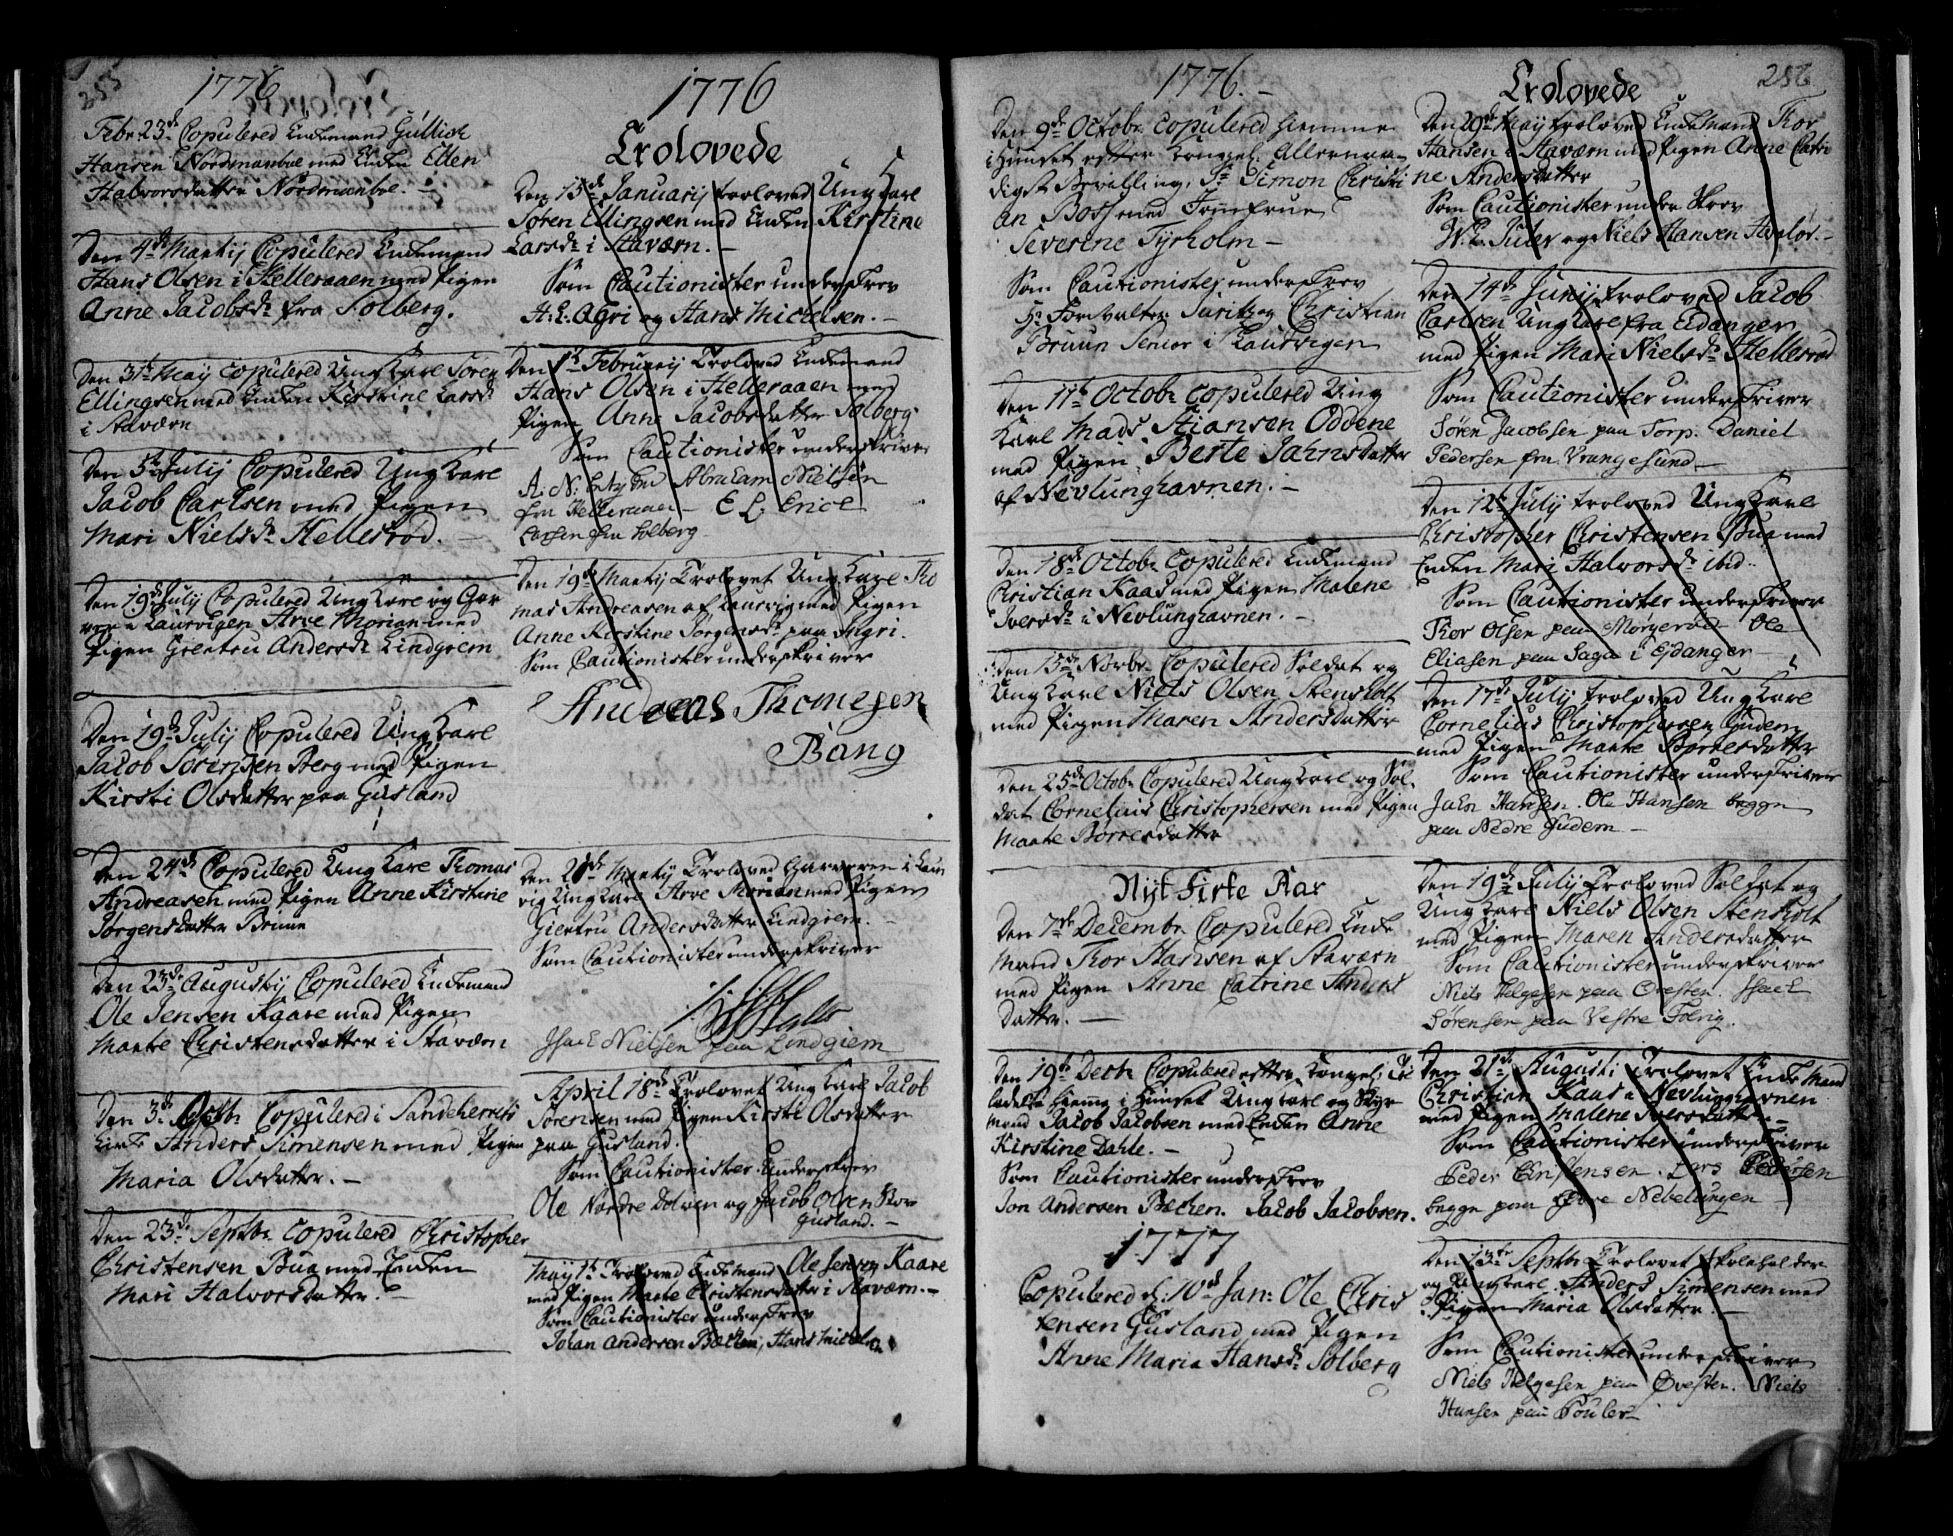 255
1776
Febr. 23de Copulered Enkemand Gullich
Hansen Nordmanboe med Enken Ellen
Halvorsdatter Nordmanboe. -
Den 4de Martij Copulered Enkemand
Hans Olsen i Helleraaen med Pigen
Anne Jacobsdr fra Solberg.
Den 31te Maij Copulered Ung Karl Søren
Ellingsen med Enken Kirstine Larsdr
i Staværn
Den 5te Julij Copulered Ung Karl
Jacob Carlsen med Pigen
Mari Nielsdr Hellesrød.
Den 19de Julij Copulered Ung Karl og Gar
ver i Laurvigen Arve Morian med
Pigen Giertru Andersdr Lindgiem
Den 19de Julij Copulered Ung Karl
Jacob Sørensen Berg med Pigen
Kirsti Olsdatter paa Gusland
Den 24de Copulered Ung Karl Thomas
Andreasen med Pigen Anne Kirstine
Jørgensdatter Bruun
Den 23de Augustij Copulered Enkemand
Ole Jensen Kaare med Pigen
Marte Christensdatter i Staværn
Den 3de Septbr Copulered i Sandeherrets
Kirke Anders Simensen med Pigen
Maria Olsdatter. -
Den 23de Septbr Copulered Christopher
Christensen Bua med Enken
Mari Halvorsdatter. -
1776
Trolovede
Den 15de Januarij troloved Ung Karl
Søren Ellingsen med Enken Kirstine
Larsdr i Staværn. -
Som Cautionister underskrev
H. L. Agri og Hans Michelsen. -
Den 1te Februarij Troloved Enkemand
Hans Olsen i Helleraaen med
Pigen Anne Jacobsdatter Solberg
Som Cautionister underskriver
A: N: Abraham Nielsen
fra Helleraaen - E L. Erice
Larsen fra Solberg
Den 19de Martij Trolovet Ung Karl Tho
mas Andreasen af Laurvig med Pigen
Anne Kirstine Jørgensdr paa Agri.
Som Cautionister underskriver
Andreas Thomesen
Bang
Den 28de Martij Troloved Garveren i Laur
vig Ung Karl Arve Morian med Pigen
Giertru Andersdatter Lindgiem. -
Som Cautionister underskriver
Isach Nielsen paa Lindgiem
April 18de Trolovet Ung Karl Jacob
Sørensen med Pigen Kirsti Olsdatter
paa Gusland.
Som Cautionister Underskrev
Ole Nordre Dolven og Jacob Olsen Skov
Gusland. -
Maij 1te Troloved Enkemand Ole Jensen Kaare
med Pigen Marte Christensdatter i Staværn. -
Som Cautionister underskrev
Johan Andersen Bæcken, Hans Michelsen
1776. -
Den 9de Octobr Copulered hiemme
i Huuset efter Kongel. Allernaa-
digst Bevilling, Sr Simon Christi
an Boss med Jomfrue
Severine Tyrholm -
Som Cautionister underskrev
Hr Forvalter Juritz og Christian
Bruun Senior i Laurvigen
Den 11te Octobr Copulered Ung
Karl Mads Stiansen Oddene
med Pigen Berte Jahnsdatter
af Nevlunghavnen. -
Den 18de Octobr Copulered Enkemand
Christian Kaas med Pigen Malene
Iversdr i Nevlunghavnen. -
Den 15de Novbr Copulered Soldat og
Ung Karl Niels Olsen Stensholt
med Pigen Maren Andersdatter
Den 25de Octobr Copulered Ung Karl og Sol
dat Cornelius Christophersen med Pigen
Marte Børresdatter
Nyt Kirke Aar
Den 7de Decembr Copulered Enke
Mand Thor Hansen af Staværn
med Pigen Anne Catrine Anders
datter. -
Den 19de Decbr Copulered efter Kongel: Til
ladelse hiemme i Huuset Ung Karl og Styr
mand Jacob Jacobsen med Enken Anne
Kirstine Dahle. -
Som Cautionister underskrev
Jon Andersen Bæcken. Jacob Jacobsen.
1777
Copulered d: 10de Jan: Ole Chris
tensen Gusland med Pigen
Anne Maria Hansdr Solberg
Trolovede
256
Den 29de Maij troloved Enkemand Thor
Hansen i Staværn med Pigen Anne Catri
ne Andersdatter
Som Cautionister underskrev
W. L. Juler og Niels Hansen Hamlør. -
Den 14de Junij troloved Jacob
Carlsen Ung Karl fra Eidanger
med Pigen Mari Nielsdr Hellesrød
Som Cautionister underskriver
Søren Jacobsen paa Torp. Daniel
Pedersen fra Vrangesund
Den 12te Julij troloved Ung Karl
Christopher Christensen Bua med
Enken Mari Halvorsdr ibid.
Som Cautionister underskriver
Thor Olsen paa Mørgerød Ole
Eliasen paa Saga i Ejdanger
Den 17de Julij troloved Ung Karl
Cornelius Christophersen Gudem
med Pigen Marte Børresdatter
Som Cautionister underskriver
Jahn Hansen. Ole Hansen begge
paa Nedre Gudem -
Den 19de Julij Troloved Soldat og
Ung Karl Niels Olsen Stensholt
med Pigen Maren Andersdatter
Som Cautionister underskriver
Niels Helgesen paa Ovesten. Isach
Sørensen paa Vestre Foerig.
Den 21de Augusti Trolovet Enke Mand
Christian Kaas i Nevlunghavnen
med Pigen Malene Iversdatter
Som Cautionister underskriver
Peder Lars Pedersen
begge paa Nebelungen
Den 13de Septbr Trolovet Skoleholder
og Ung Karl Anders Simensen med
Pigen Maria Olsdatter. -
Som Cautionister underskriver
Niels Helgesen paa Øvesten. Niels
Hansen paa